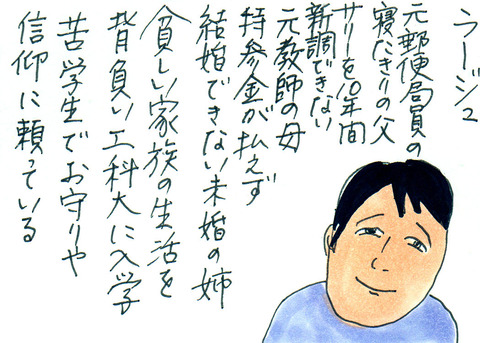 ラージュ
元郵便局員の
寝たきりの父
サリーを10年間
新調できない
元教師の母
持参金が払えず
結婚できない未婚の姉
貧しい家族の生活を
背負い工科大に入学
苦学生でお守りや
信仰に頼っている